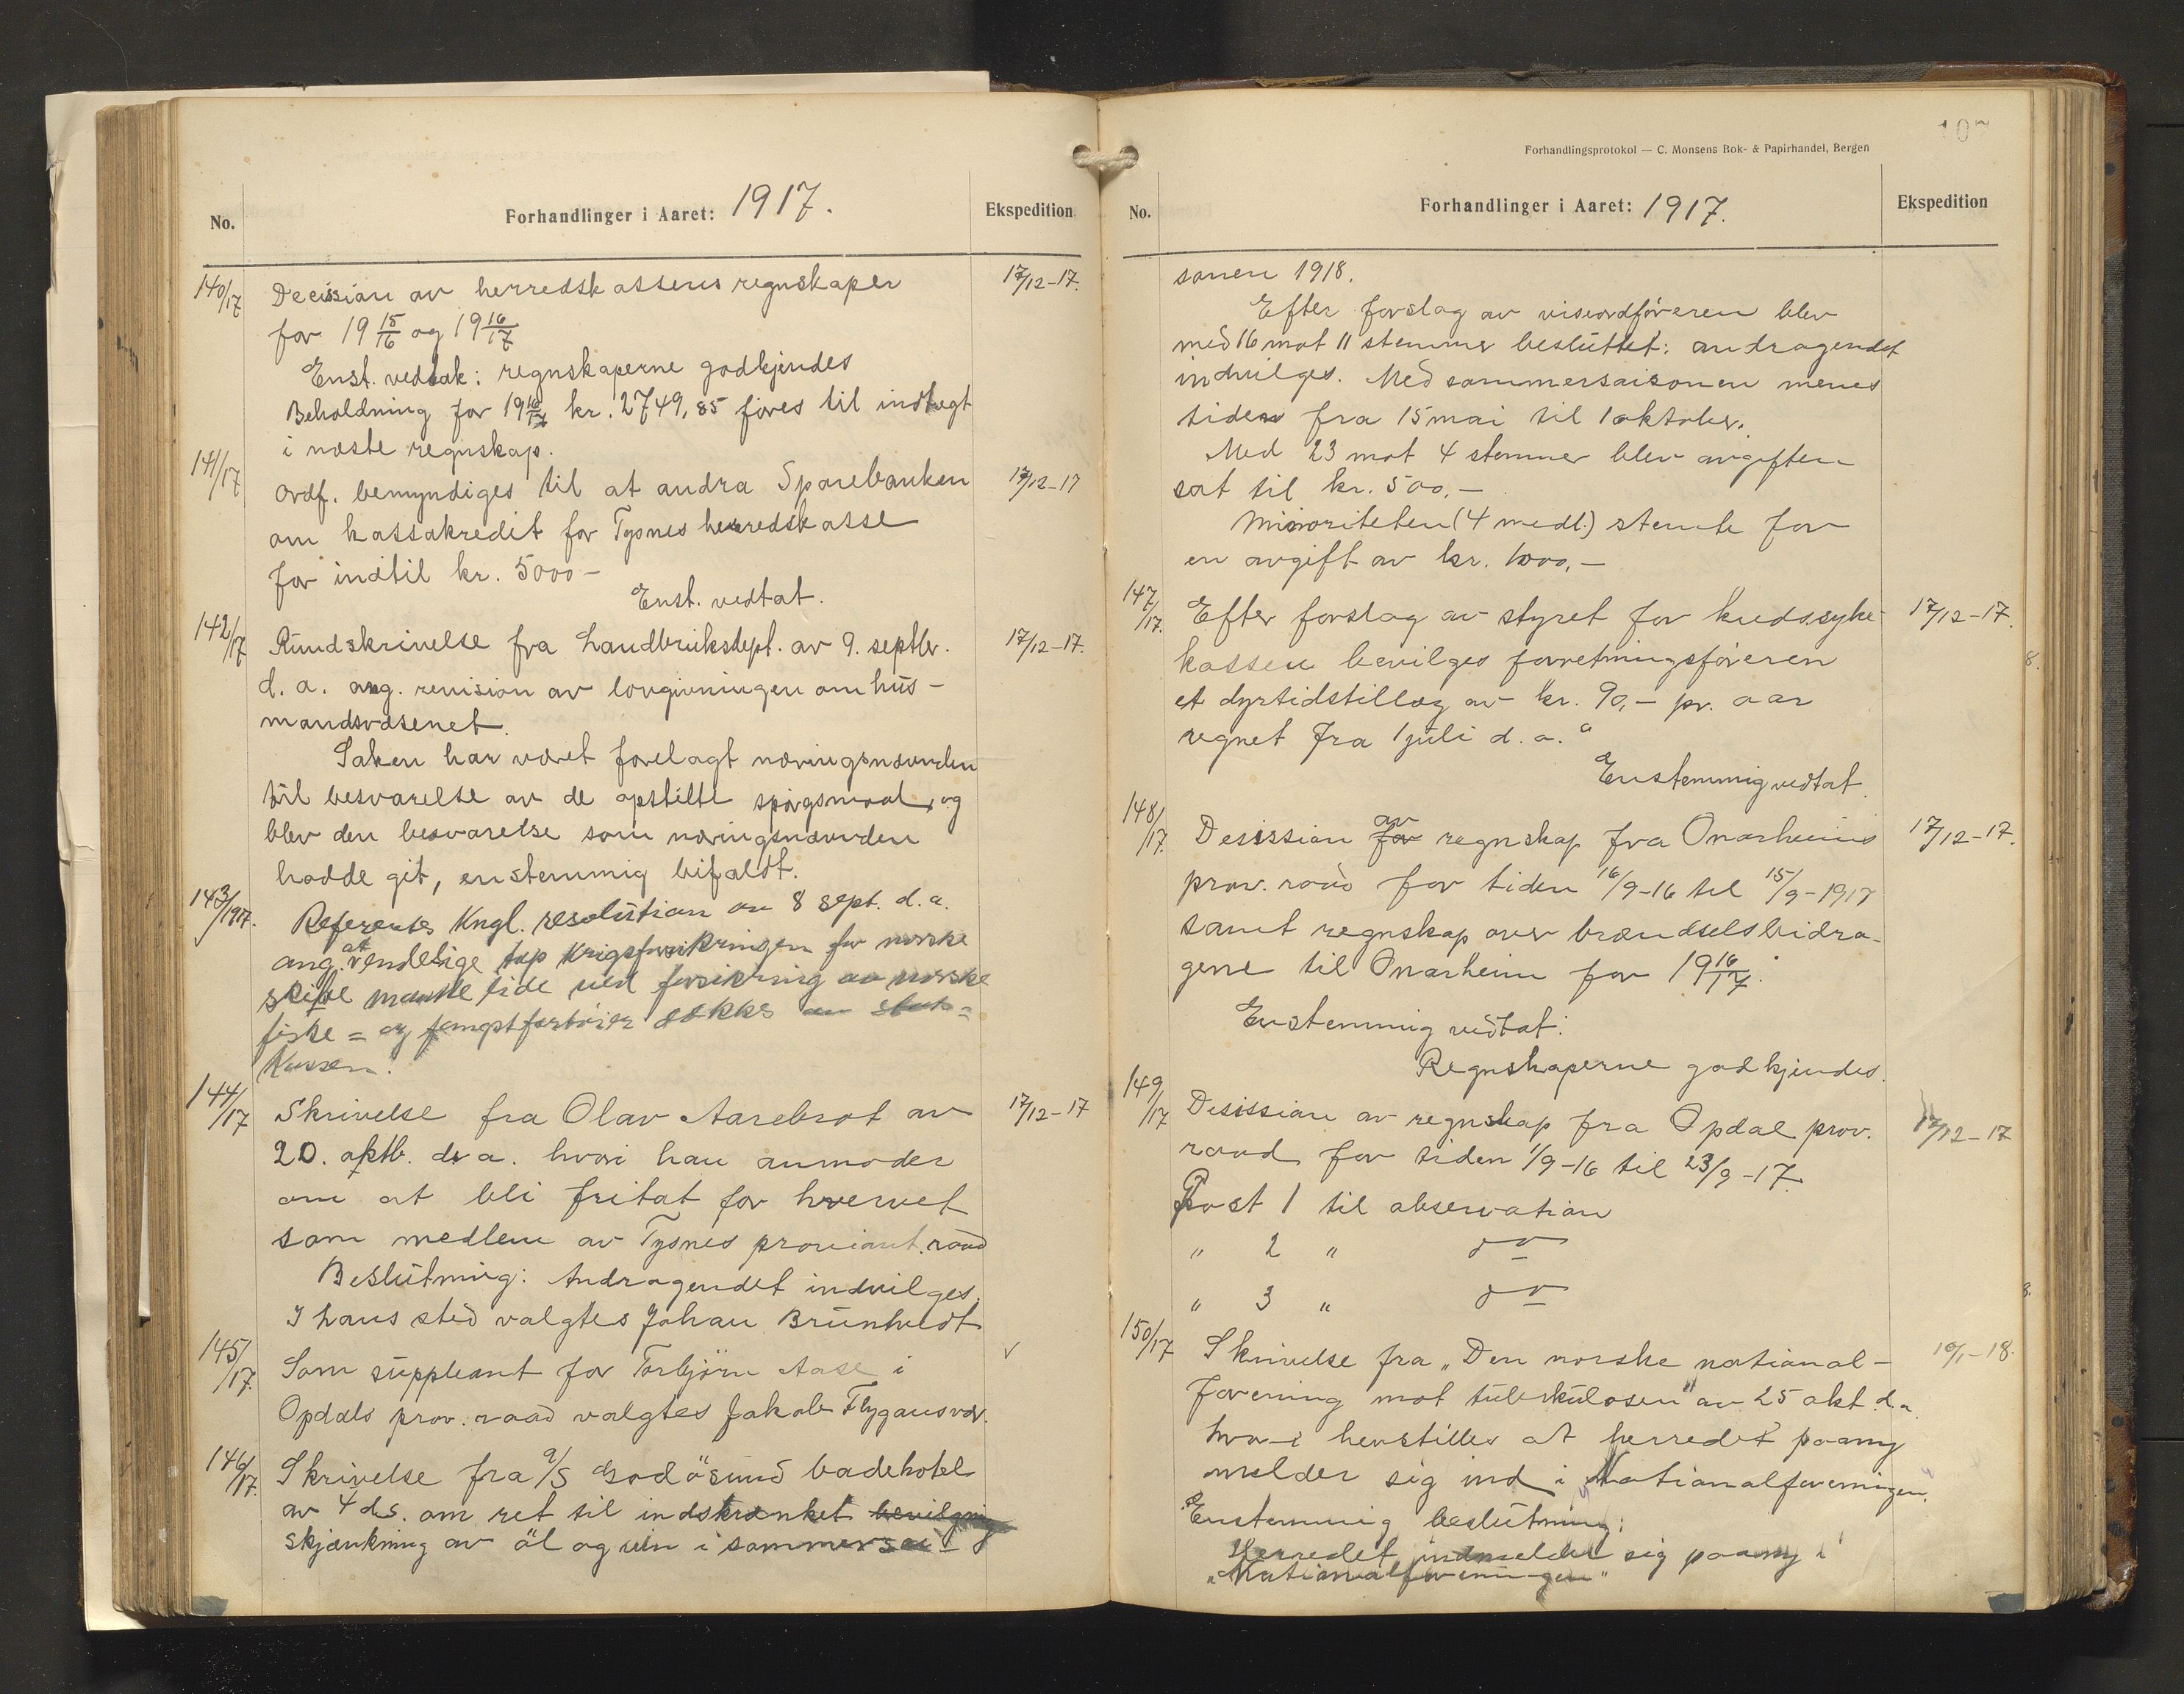 No.
Forhandlinger i Aaret: 1917.
Ekspedition
140/17
Decission av herredskassens regnskaper
17/12-17.
for 19 15/16 og 19 16/17
Enst. vedtak: regnskaperne godkjendes
Beholdning for 19 16/17 kr. 2749,85 föres til indtægt
i næste regnskap.
141/17
Ordf. bemyndiges til at andra Sparebanken
17/12-17
om kassakredit for Tysnes herredskasse
for indtil kr. 5000-
Enst. vedtat.
142/17
Rundskrivelse fra Landbruksdept. av 9. septbr.
17/12-17.
d. a. ang. revision av lovgivningen om hus-
mandsvæsenet.
Saken har været forelagt næringsnævnden
til besvarelse av de opstilte spörgsmaal, og
blev den besvarelse som næringsnævnden
hadde git, enstemmig bifaldt.
143/1917.
Referertes Kngl. resolution av 8 sept. d. a.
ang. at endelige tap Krigsforsikringen for norske
skibe maatte lide ved forsikring av norske
fiske= og fangstfartöier dækkes av stats=
kassen.
144/17
Skrivelse fra Olav Aarebrot av
17/12-17
20. oktb. d. a. hvori han anmoder
om at bli fritat for hvervet
som medlem av Tysnes proviant.raad
Beslutning: Andragendet indvilges.
I hans sted valgtes Johan Bruntvedt
145/17.
Som suppleant for Torbjörn Aase i
Opdals prov. raad valgtes Jakob Flygansvær.
146/17.
Skrivelse fra A/S Godösund badehotel
av 4 ds. om ret til indskrænket bevilgning
skjænkning av öl og vin i sommersai-
107
Forhandlingsprotokol — C. Monsens Bok- & Papirhandel, Bergen
No.
Forhandlinger i Aaret: 1917.
Ekspedition
sonen 1918.
Efter forslag av viseordföreren blev
med 16 mot 11 stemmer besluttet: andragendet
indvilges. Med sommersaisonen menes
tiden fra 15 mai til 1 oktober.
Med 23 mot 4 stemmer blev avgiften
sat til kr. 500,-
Minoriteten (4 medl.) stemte for
en avgift av kr. 1000,-
147/17.
Efter forslag av styret for kredssyke-
17/12-17.
kassen bevilges forretningsföreren
et dyrtidstillæg av kr. 90,- pr. aar
regnet fra 1 juli d. a."
Enstemmig vedtat.
148/17.
Desission for av regnskap fra Onarheims
17/12-17.
prov. raad for tiden 16/9-16 til 15/9-1917
samt regnskap over brændselsbidra-
gene til Onarheim for 19 16/17.
Enstemmig vedtat:
Regnskaperne godkjendes.
149/17
Desission av regnskap fra Opdal prov.
17/12-17
raad for tiden 1/9-16 til 23/9-17.
Post 1 til observation
" 2 " do
" 3 " do
150/17
Skrivelse fra "Den norske national-
10/1-18.
forening mot tuberkulosen" av 25 okt. d. a.
hvor-i henstilles at herredet paany
melder sig ind i Nationalforeningen.
Enstemmig beslutning:
Herredet indmelder sig paany i
"Nationalforeningen"